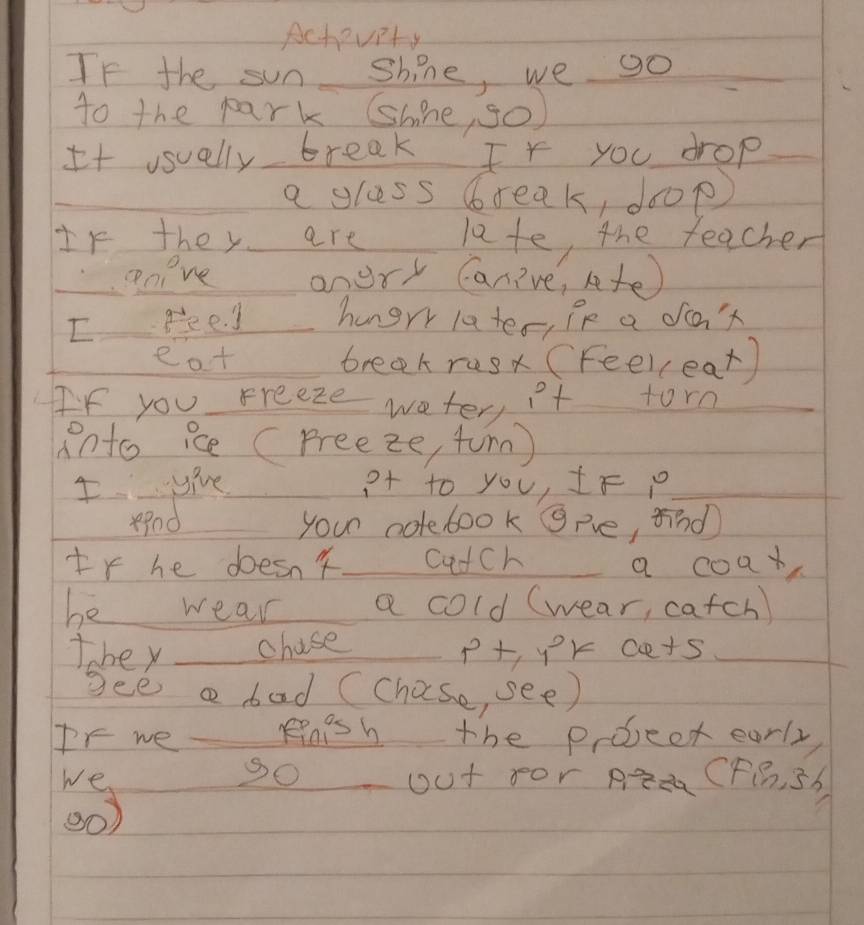 Activity
IF the sun shine, we go
to the park (shine, go)
It usually break IF you drop
a glass (break, drop)
IF they are late, the teacher
arrive angry (arrive, late)
I Feel hungry later, if a don't
eat breakfast (Feel, eat)
IF you Freeze water, it torn
into ice (Freeze, turn)
I give it to you, IF i
find your notebook (give, find)
IF he doesn't catch a coat,
he wear a cold (wear, catch)
They chase it, if cats
see a bad (chase, see)
IF we finish the project early,
We go out for pizza (Finish,
go)